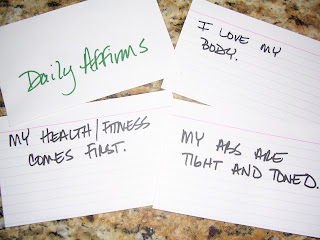 Daily Affirms
I LOVE MY
BODY.
MY HEALTH/FITNESS
COMES FIRST.
MY ABS ARE
TIGHT AND TONED.